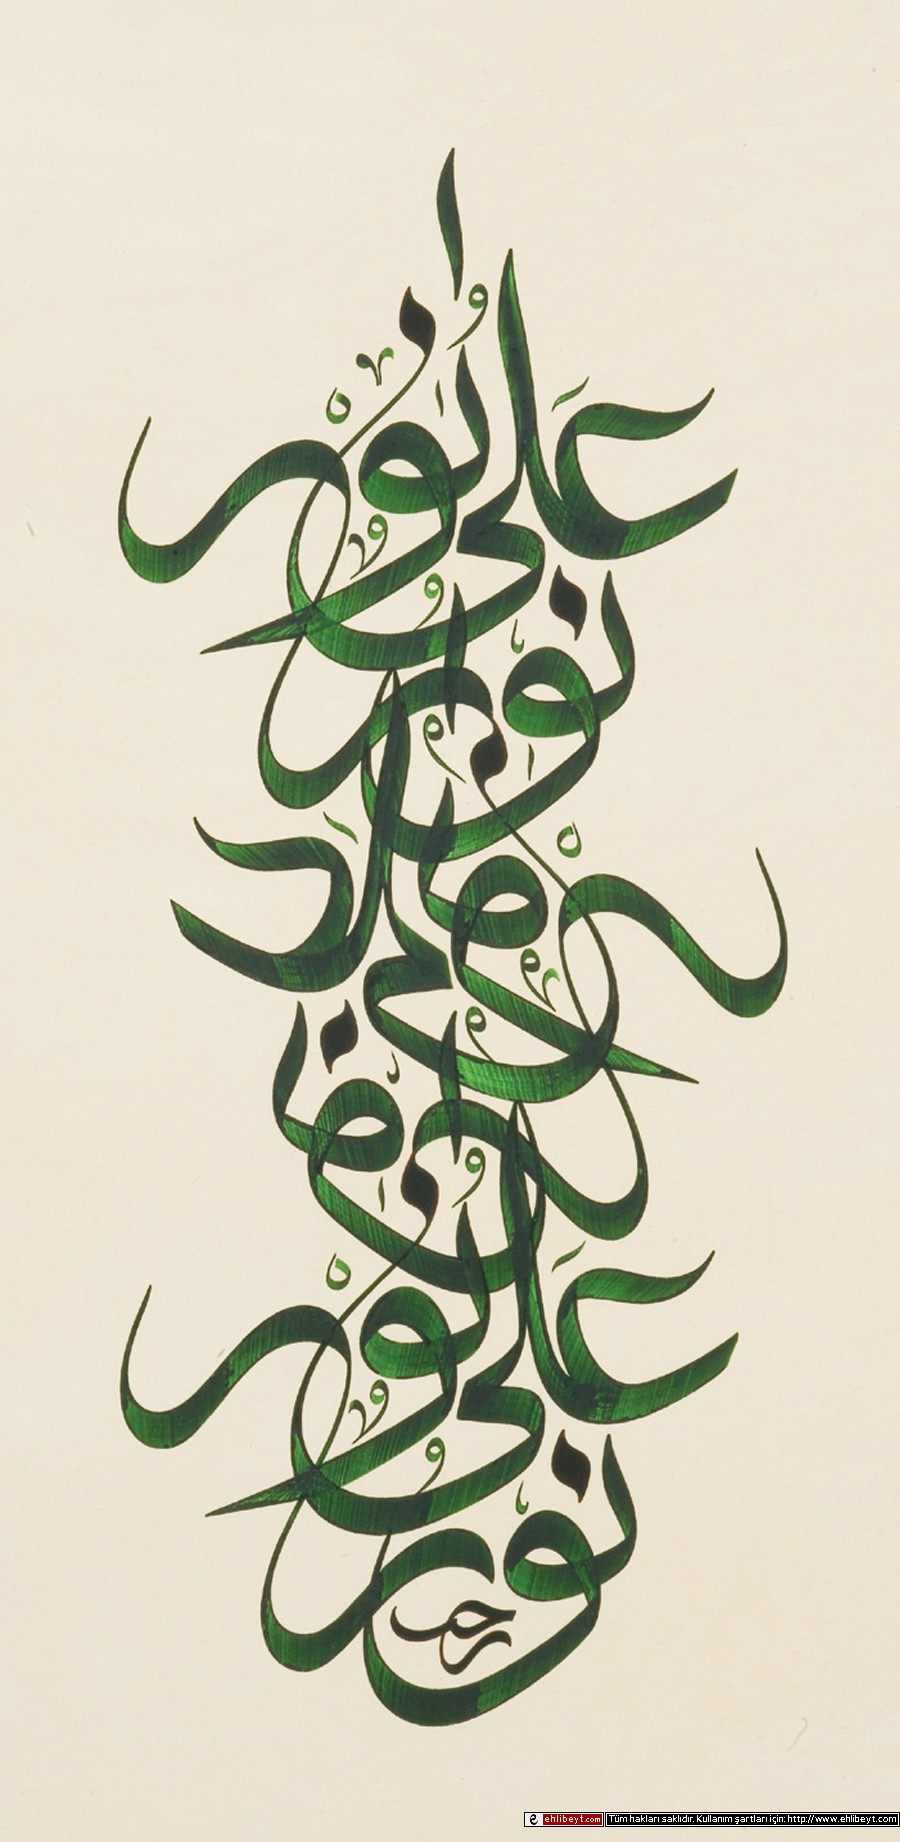 نور
على
نور
نور
على
نور
نور
على
نور
ehlibeyt.com Tüm hakları saklıdır. Kullanım şartları için: http://www.ehlibeyt.com